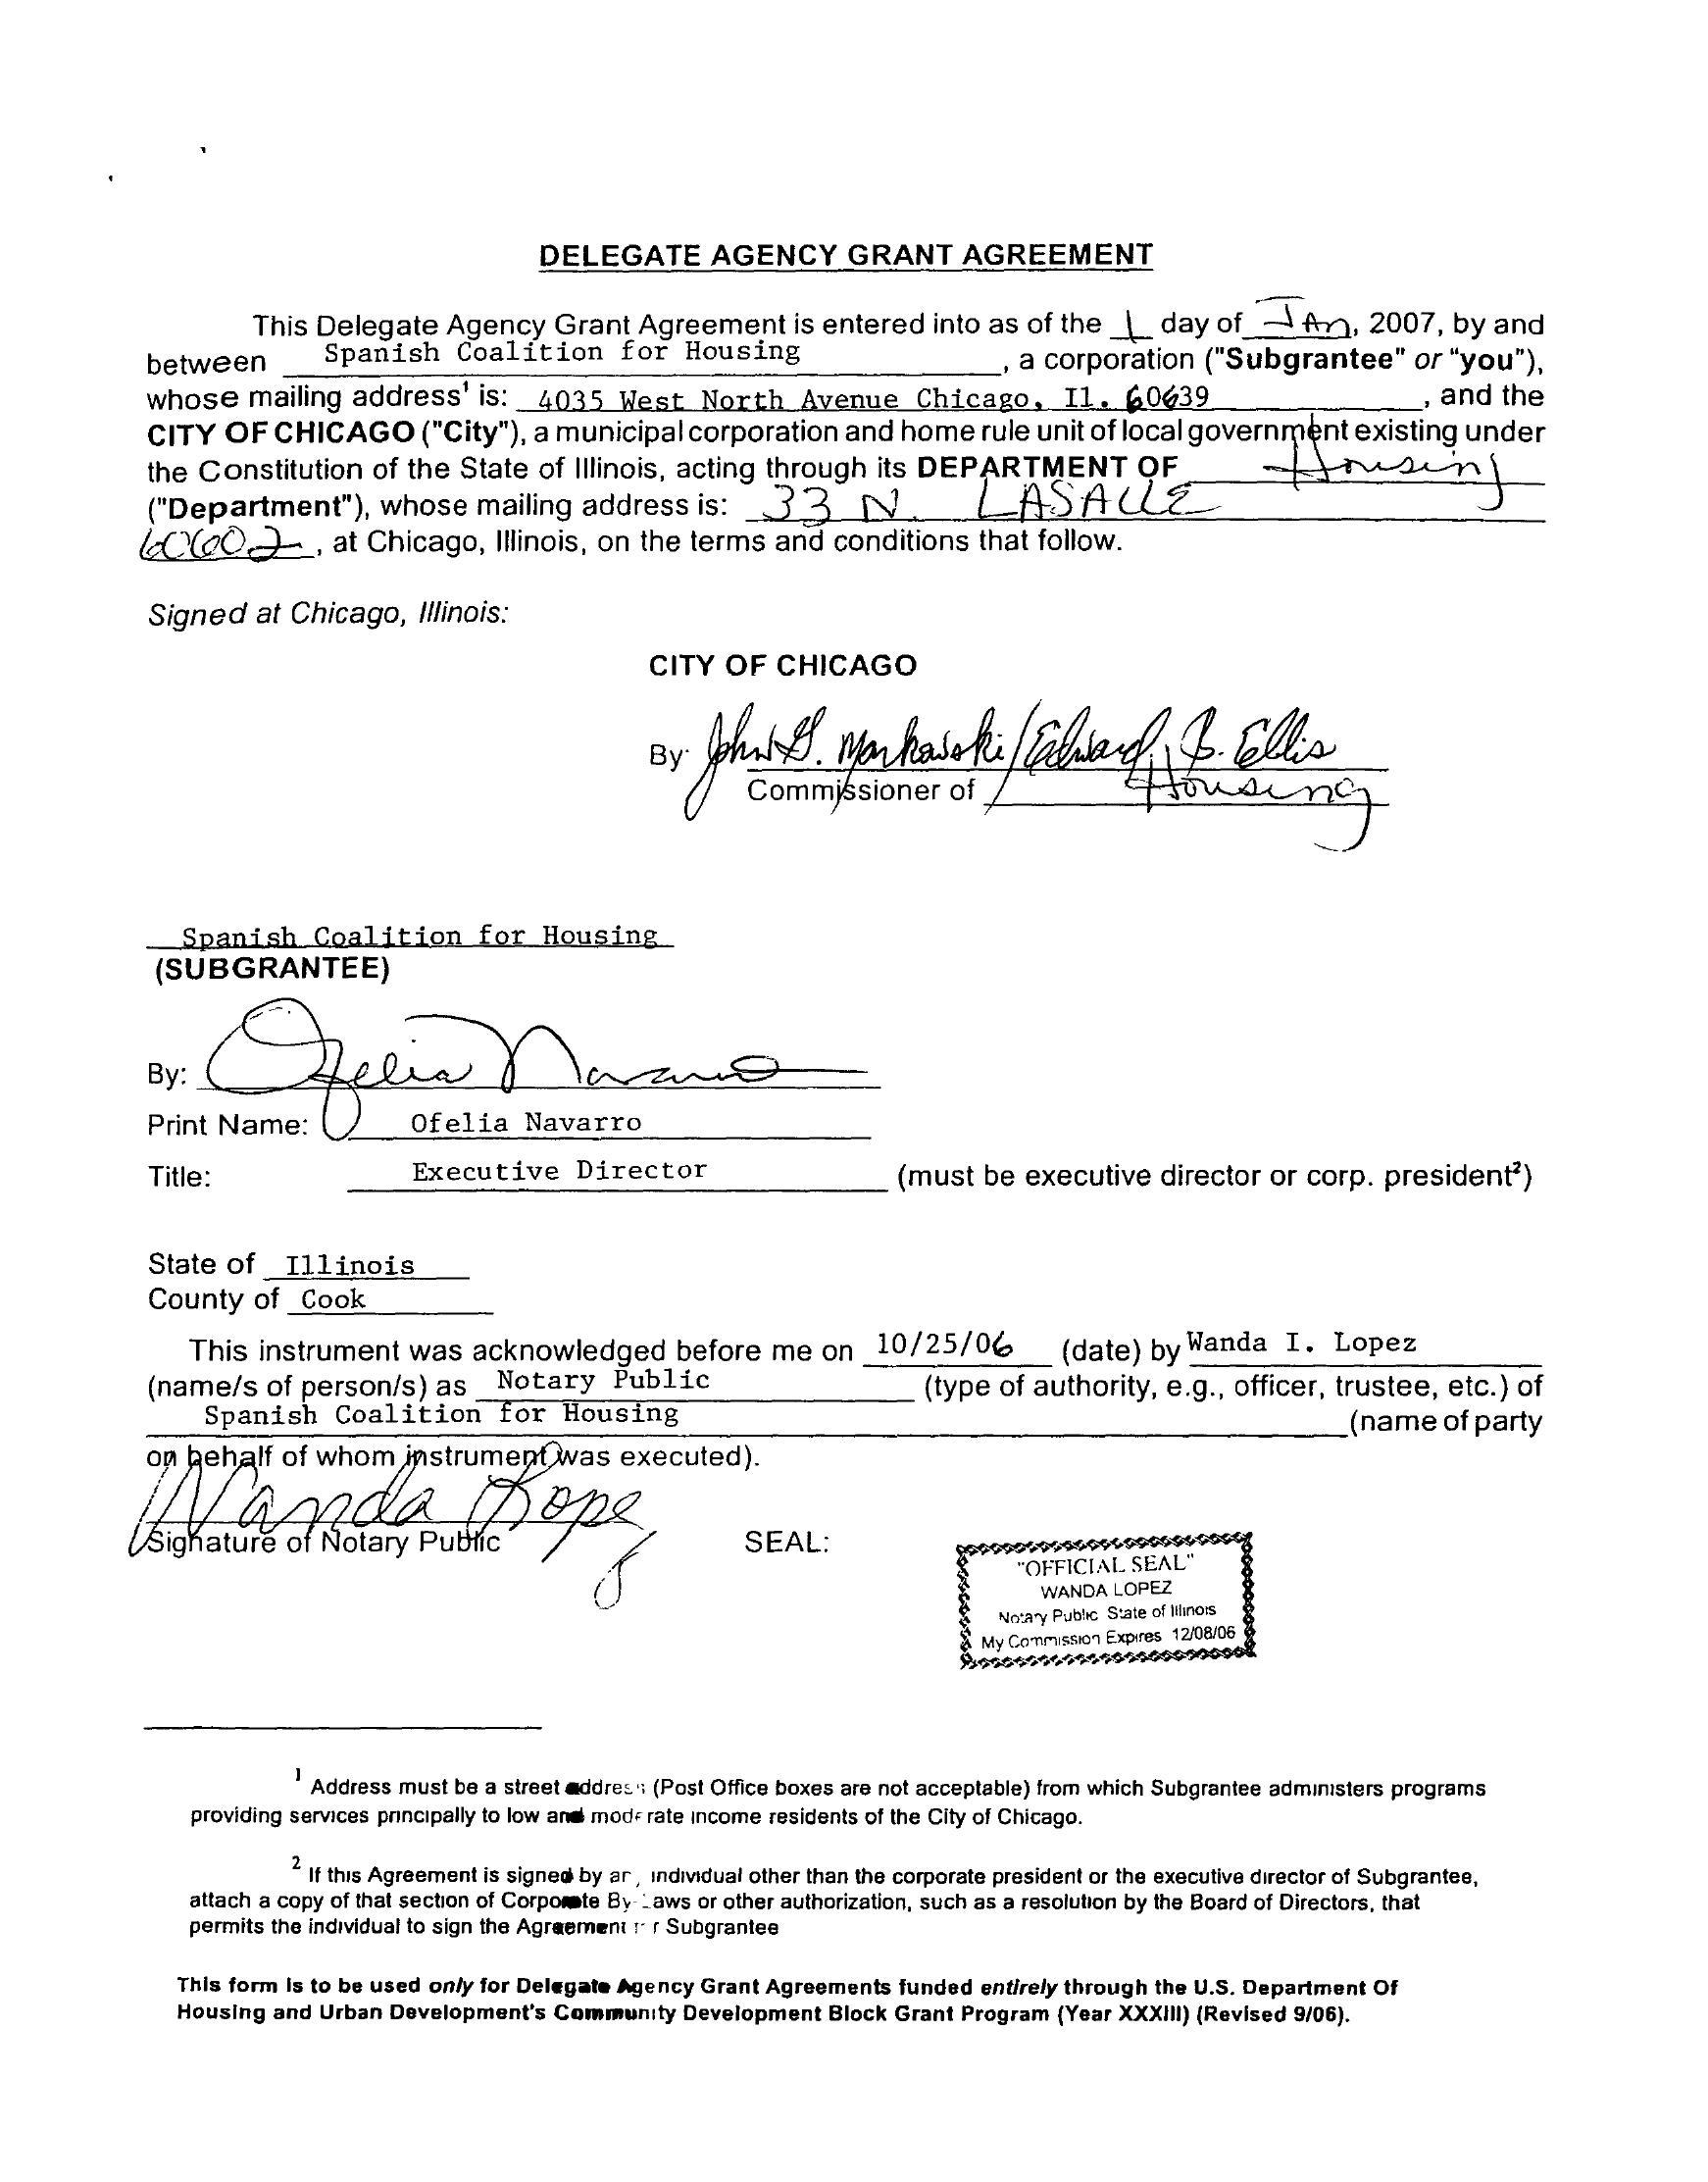 DELEGATE AGENCY GRANT AGREEMENT
This Delegate Agency Grant Agreement is entered into as of the 1 day of Jan, 2007, by and
between Spanish Coalition for Housing, a corporation ("Subgrantee" or "you"),
whose mailing address¹ is: 4035 West North Avenue Chicago, Il. 60639, and the
CITY OF CHICAGO ("City"), a municipal corporation and home rule unit of local government existing under
the Constitution of the State of Illinois, acting through its DEPARTMENT OF Housing
("Department"), whose mailing address is: 33 N. LASALLE
60602, at Chicago, Illinois, on the terms and conditions that follow.
Signed at Chicago, Illinois:
CITY OF CHICAGO
By: John G. Markowski/Edward B. Ellis
Commissioner of Housing
Spanish Coalition for Housing
(SUBGRANTEE)
By: Ofelia Navarro
Print Name: Ofelia Navarro
Title: Executive Director (must be executive director or corp. president²)
State of Illinois
County of Cook
This instrument was acknowledged before me on 10/25/06 (date) by Wanda I. Lopez
(name/s of person/s) as Notary Public (type of authority, e.g., officer, trustee, etc.) of
Spanish Coalition for Housing (name of party
on behalf of whom instrument was executed).
Wanda Lopez
Signature of Notary Public SEAL:
"OFFICIAL SEAL"
WANDA LOPEZ
Notary Public State of Illinois
My Commission Expires 12/08/06
¹ Address must be a street address (Post Office boxes are not acceptable) from which Subgrantee administers programs
providing services principally to low and moderate income residents of the City of Chicago.
² If this Agreement is signed by an individual other than the corporate president or the executive director of Subgrantee,
attach a copy of that section of Corporate By-Laws or other authorization, such as a resolution by the Board of Directors, that
permits the individual to sign the Agreement for Subgrantee
This form is to be used only for Delegate Agency Grant Agreements funded entirely through the U.S. Department Of
Housing and Urban Development's Community Development Block Grant Program (Year XXXIII) (Revised 9/06).